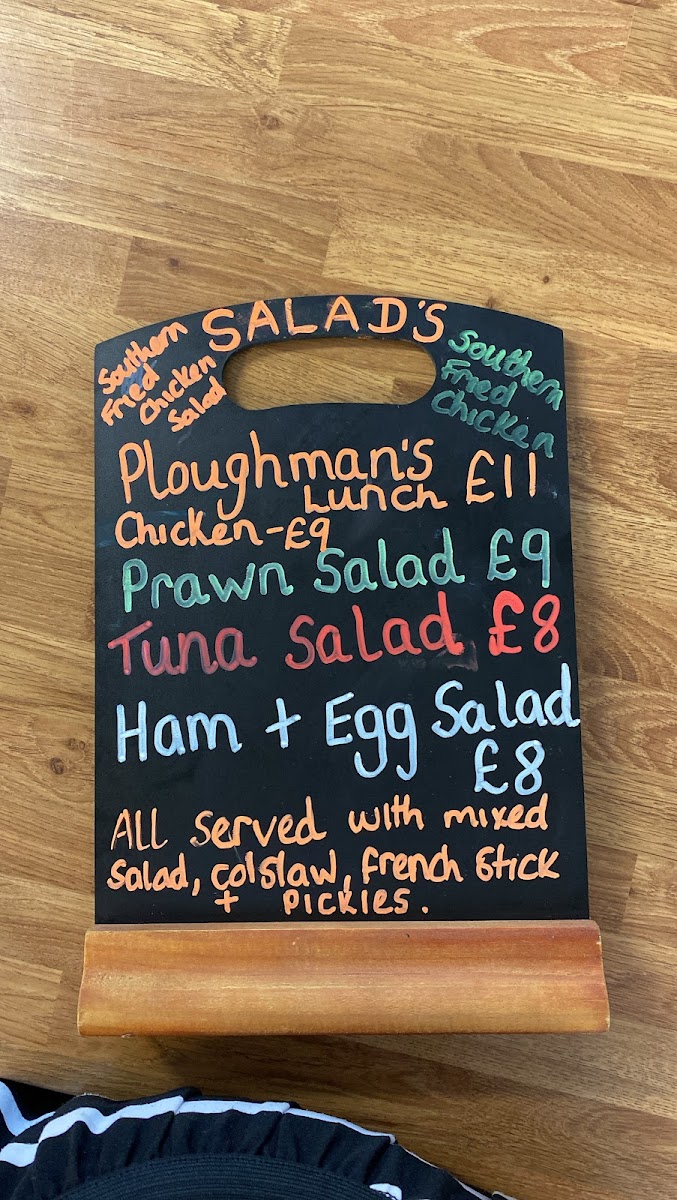 SALAD'S
Southern
Fried
Chicken
Salad
Southern
Fried
Chicken
Ploughman's
Lunch £11
Chicken-£9
Prawn Salad £9
Tuna Salad £8
Ham + Egg Salad
£8
ALL Served with mixed
Salad, colslaw, french stick
+ PICKlES.